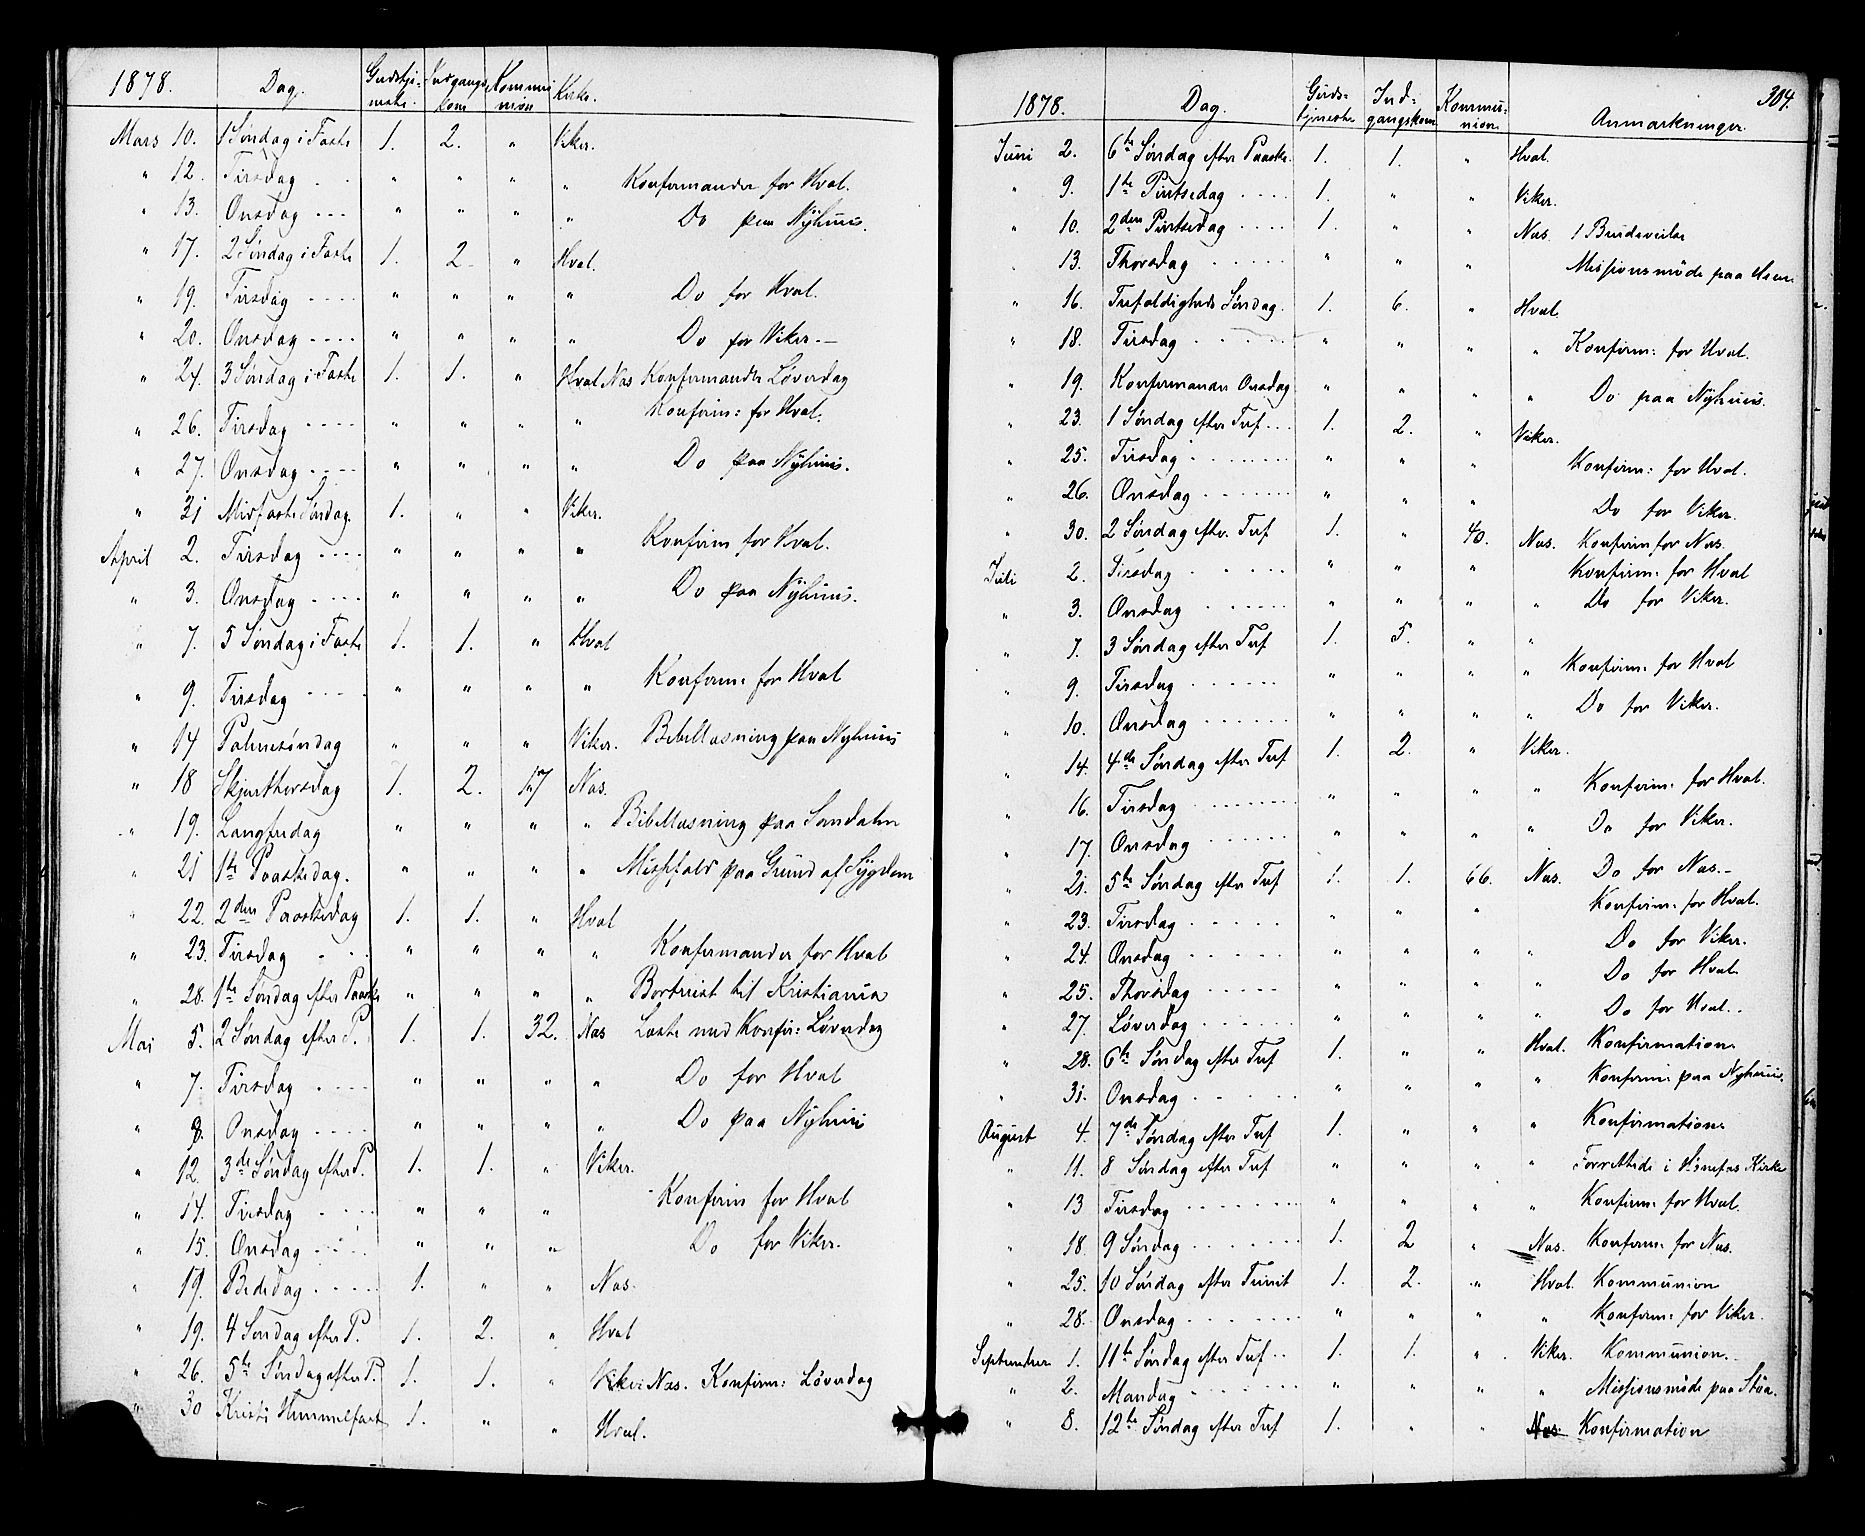 1878. Dag. Gudstjeneste. Indgangskone Kommunion Kirke.
Mars 10. 1 Søndag i Faste 1. 2. " Viker.
" 12. Tirsdag . . " " " " Konfirmander for Hval.
" 13. Onsdag ... " " " " Do paa Nyhuus.
" 17. 2 Søndag i Faste 1. 2 " Hval.
" 19. Tirsdag .... " " " " Do for Hval.
" 20. Onsdag .... " " " " Do for Viker.–
" 24. 3 Søndag i Faste 1. 1. " Hval Nas Konfermandtr Løverdag
" 26. Tirsdag .... " " " " Konfirm: for Hval.
" 27. Onsdag .... " " " " Do paa Nyhuus.
" 31 Midfaste Søndag. 1. " " Viker.
April 2. Tirsdag .... " " " " Konfirm for Hval.
" 3. Onsdag .... " " " " Do paa Nyhuus.
" 7. 5 Søndag i Faste 1. 1. " Hval
" 9. Tirsdag .... " " " " Konfirm: for Hval
" 14 Palmesøndag " " " Viker. Bibellæsning paa Nyhuus
" 18 Skjærthorsdag 1. 2. 17 Nas.
" 19. Langfredag " " " " Bibellæsning paa
" 21 1te Paaskedag. " " " " Messefald paa Grund af Sygdom
" 22. 2den Paaskedag 1. 1. " Hval
" 23. Tirsdag . .. " " " " Konfermander for Hval
" 28. 1te Søndag efter Paaske " " " " Bortreist til Kristiania
Mai 5. 2 Søndag efter P. 1. 1. 32. Nas Læste med Konfir: Løverdag
" 7. Tirsdag .... " " " " Do for Hval
" 8. Onsdag .... " " " " Do paa Nyhuus
" 12. 3de Søndag efter P. 1. 1. " Viker.
" 14. Tirsdag .... " " " Konfirm for Hval
" 15. Onsdag .... " " " Do for Viker.
" 19. Bededag .... 1. " " Nas.
" 19. 4 Søndag efter P. 1. 2. " Hval
" 26. 5te Søndag efter P. 1. 1. " Viker Nas. Konfirm: Løverdag
" 30 Kristi Himmelfart 1. " " Hval.
304.
1878. Dag. Gudstjeneste Indgangskone Kommunion Anmærkninger.
Juni 2. 6te Søndag efter Paaske. 1. 1. " Hval.
" 9. 1te Pintsedag .... 1. " " Viker.
" 10. 2den Pintsedag .... 1. " " Nas. 1 Brudevielse
" 13. Thorsdag ..... " " " Missionsmøde paa
" 16. Trefoldigheds Søndag. 1. 6. " Hval.
" 18. Tirsdag ...... " " " " Konfirm: for Hval.
" 19. Konfermander Onsdag " " " " Do paa Nyhuus.
" 23. 1 Søndag efter Tref... 1. 2. " Viker.
" 25. Tirsdag ....... " " " Konfirm: for Hval.
" 26. Onsdag ....... " " " Do for Viker.
" 30. 2 Søndag efter Tref 1. " 40. Nas. Konfirm for Nas.
Juli 2. Tirsdag ..... " " " Konfirm: for Hval
" 3. Onsdag ...... " " " " Do for Viker.
" 7. 3 Søndag efter Tref 1. 5. " "
" 9. Tirsdag ...... " " " " Konfirm: for Hval
" 10. Onsdag ...... " " " " Do for Viker.
" 14. 4de Søndag efter Tref 1. 2. " Viker.
" 16. Tirsdag ....... " " " Konfirm: for Hval.
" 17. Onsdag ...... " " " " Do for Viker.
" 21. 5te Søndag efter Tref 1. 1. 66. Nas. Do for Nas.–
" 23. Tirsdag ..... " " " Konfirm: for Hval.
" 24. Onsdag ..... " " " " Do for Viker.
" 25. Thorsdag ..... " " " " Do for Hval
" 27. Løverdag ...... " " " " Do for Hval..
" 28. 6te Søndag efter Tref 1. " " Hval. Konfirmation
" 31. Onsdag ..... " " " " Konfirm: paa Nyhuus.
August 4. 7de Søndag efter Tref 1. " " " Konfirmation
" 11. 8 Søndag efter Tref " " " " Forrettede i Hønefos Kirke
" 13 Tirsdag ....... " " " " Konfirm: for Hval.
" 18. 9 Søndag ....... 1. 2 " Nas. Konfirm: for Nas.
" 25. 10 Søndag efter Trinit 1. 2. " Hval. Kommunion
" 28. Onsdag ....... " " " " Konfirm: for Viker.
September 1. 11te Søndag efter Tref.. 1. 1. " Viker. Kommunion..
" 2. Mandag ....... " " " " Missionsmøde paa
" 8. 12te Søndag efter Tref 1. " " Nas Konfirmation